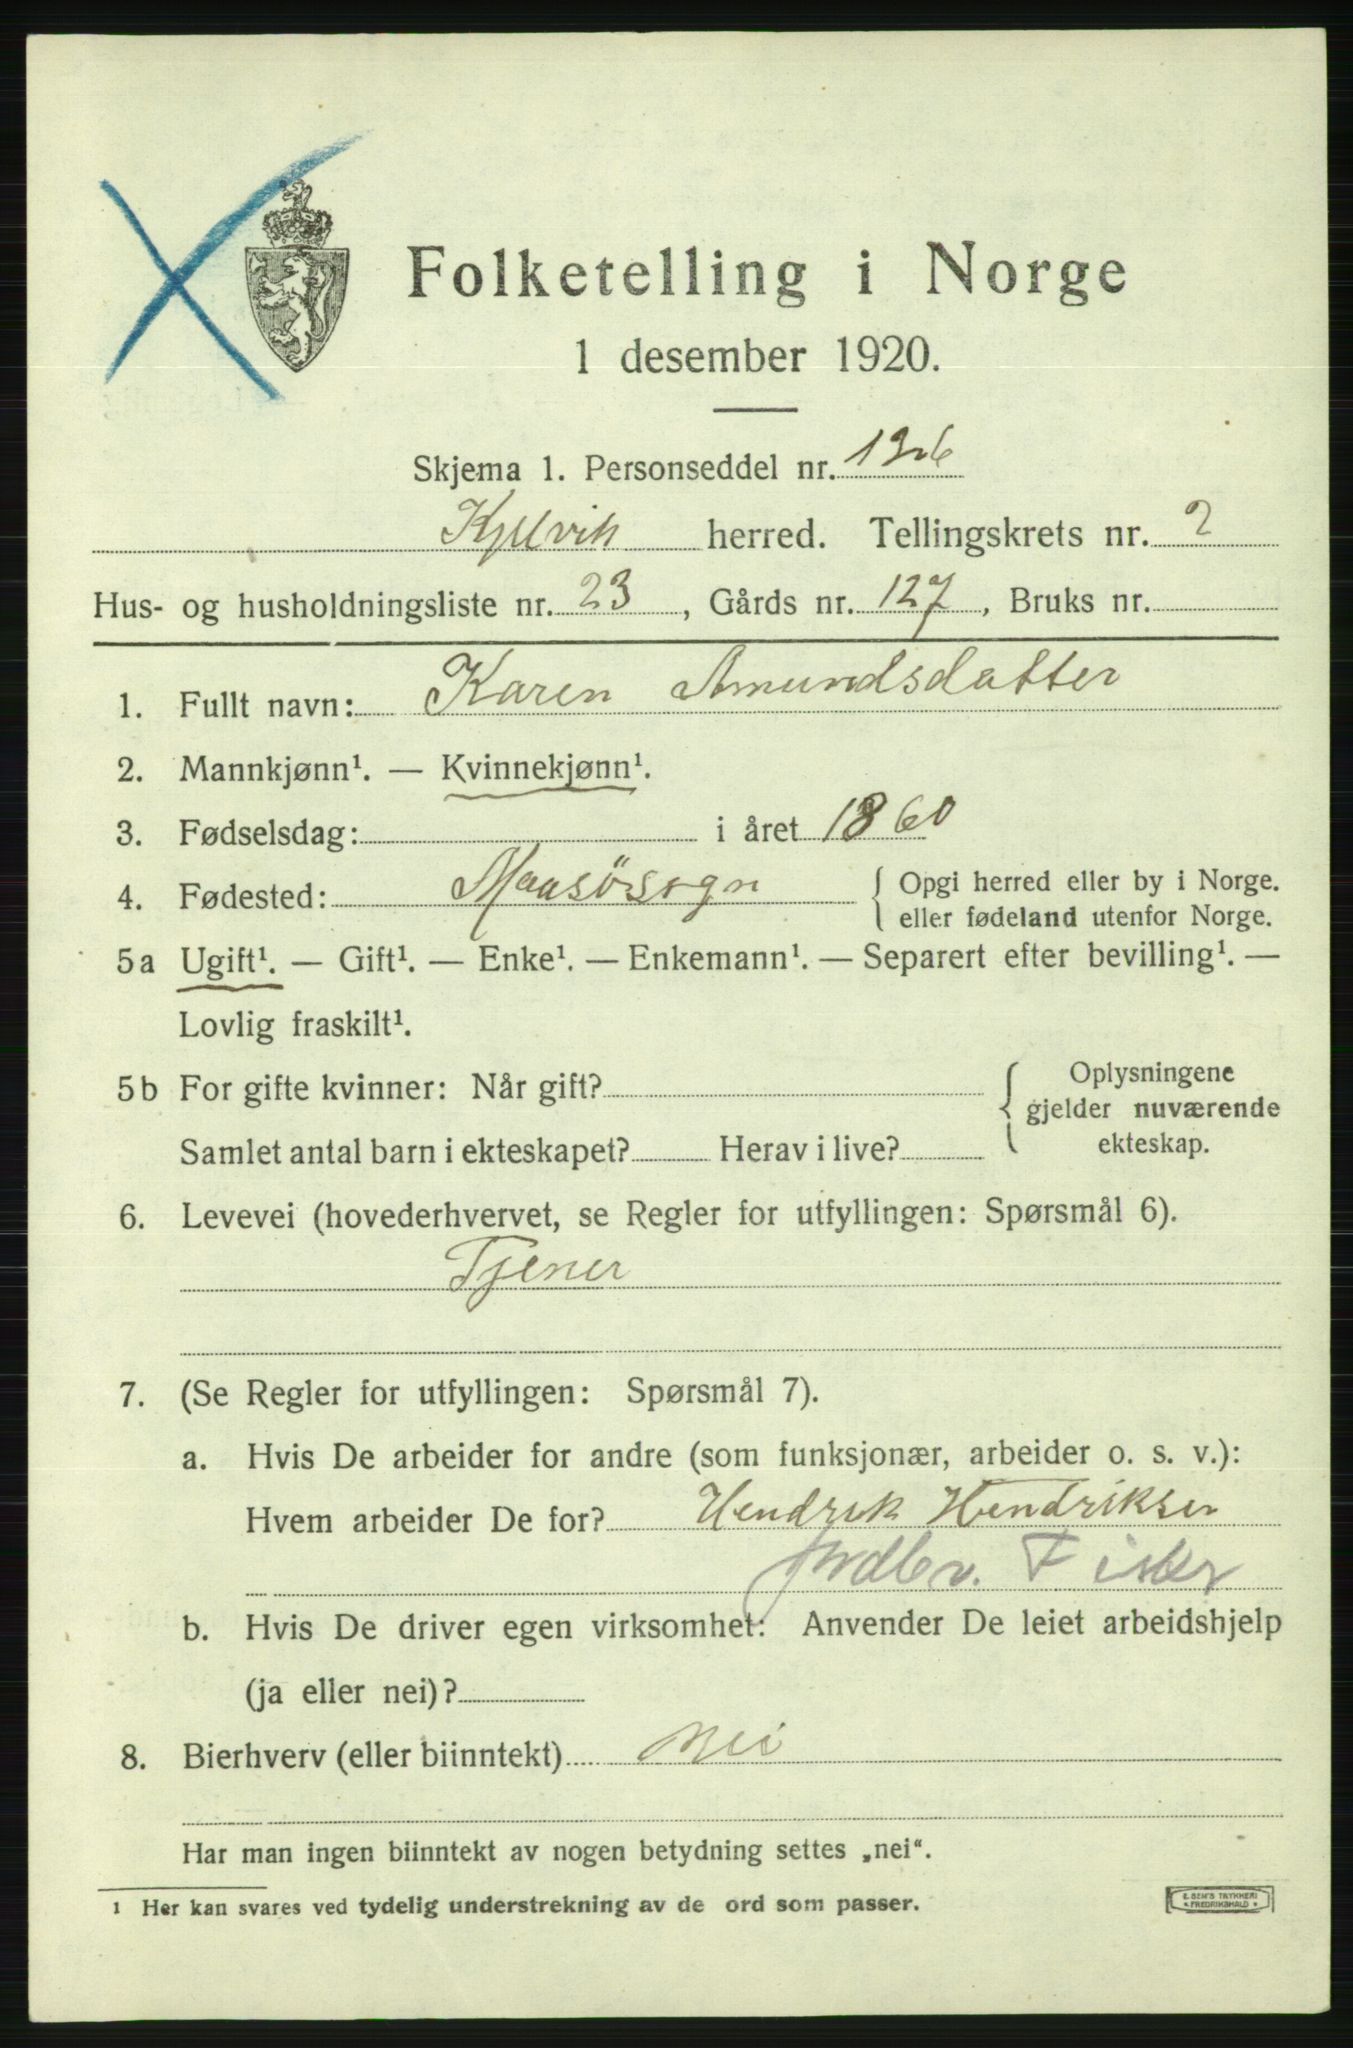 Folketelling i Norge
1 desember 1920.
Skjema 1. Personseddel nr. 126
Kjelvik herred. Tellingskrets nr. 2
Hus- og husholdningsliste nr. 23, Gårds nr. 127, Bruks nr.
1. Fullt navn: Karen Amundsdatter
2. Mannkjønn¹. — Kvinnekjønn¹.
3. Fødselsdag: i året 1860
4. Fødested: Maasösogn { Opgi herred eller by i Norge.
eller fødeland utenfor Norge.
5a Ugift¹. — Gift¹. — Enke¹. — Enkemann¹. — Separert efter bevilling¹. —
Lovlig fraskilt¹.
5b For gifte kvinner: Når gift? { Oplysningene
gjelder nuværende
Samlet antal barn i ekteskapet? Herav i live? ekteskap.
6. Levevei (hovederhvervet, se Regler for utfyllingen: Spørsmål 6).
Tjener
7. (Se Regler for utfyllingen: Spørsmål 7).
a. Hvis De arbeider for andre (som funksjonær, arbeider o. s. v.):
Hvem arbeider De for? Hendrik Hendriksen
jordbr. Fisker
b. Hvis De driver egen virksomhet: Anvender De leiet arbeidshjelp
(ja eller nei)?
8. Bierhverv (eller biinntekt) Nei
Har man ingen biinntekt av nogen betydning settes „nei“.
¹ Her kan svares ved tydelig understrekning av de ord som passer.
E SEM'S TRYKKERI
* FREDRIKSHALD *